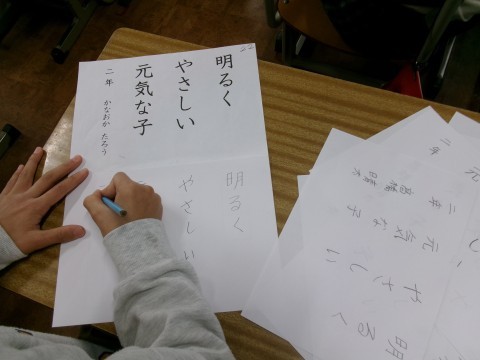 明るく
やさしい
元気な子
二年 かなおか たろう
明るく
やさしい
明るく
やさしい
元気な子
二年
元
二年